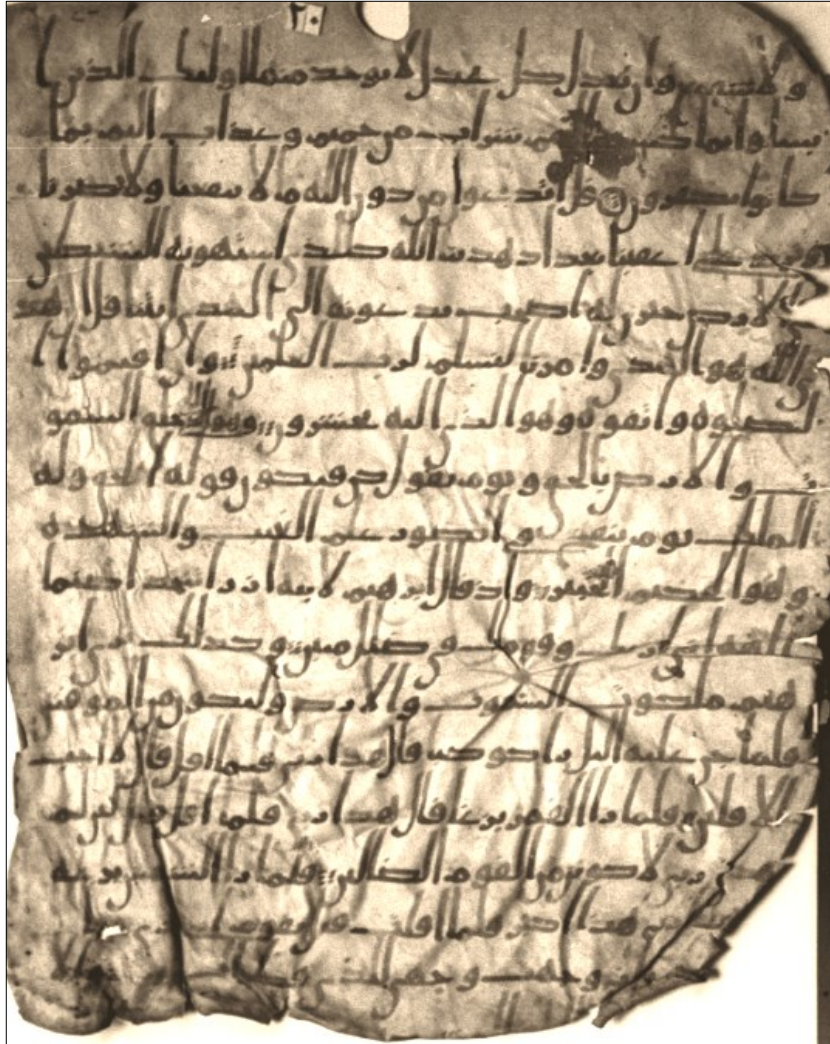 ولا شفيع وان تعدل كل عدل لا يوخذ منها اوليك الذين ا
بسلوا بما كسبوا لهم شراب من حميم وعذاب اليم بما
كانوا يكفرون قل اندعوا من دون الله ما لا ينفعنا ولا يضرنا
ونرد على اعقبنا بعد اذ هدينا الله كالذي استهوته الشيطين
في الارض حيرن له اصحب يدعونه الى الهدى ايتنا قل ان هد
ى الله هو الهدى وامرنا لنسلم لرب العلمين وان اقيموا ا
لصلوه واتقوه وهو الذي اليه تحشرون وهو الذي خلق السمو
ت والارض بالحق ويوم يقول كن فيكون قوله الحق وله
الملك يوم ينفخ في الصور علم الغيب والشهده
وهو الحكيم الخبير واذ قال ابرهيم لابيه ازر اتتخذ اصنما
الهه اني اريك وقومك في ضلل مبين وكذلك نري ابر
هيم ملكوت السموت والارض وليكون من الموقنين
فلما جن عليه اليل را كوكبا قال هذا ربي فلما افل قال لا احب
الافلين فلما را القمر بزغا قال هذا ربي فلما افل قال لين لم
يهدني ربي لاكونن من القوم الضالين فلما را الشمس بزغه
ربي هذا اكبر فلما افلت قال يقوم اني بري
اني وجهت وجهي للذي